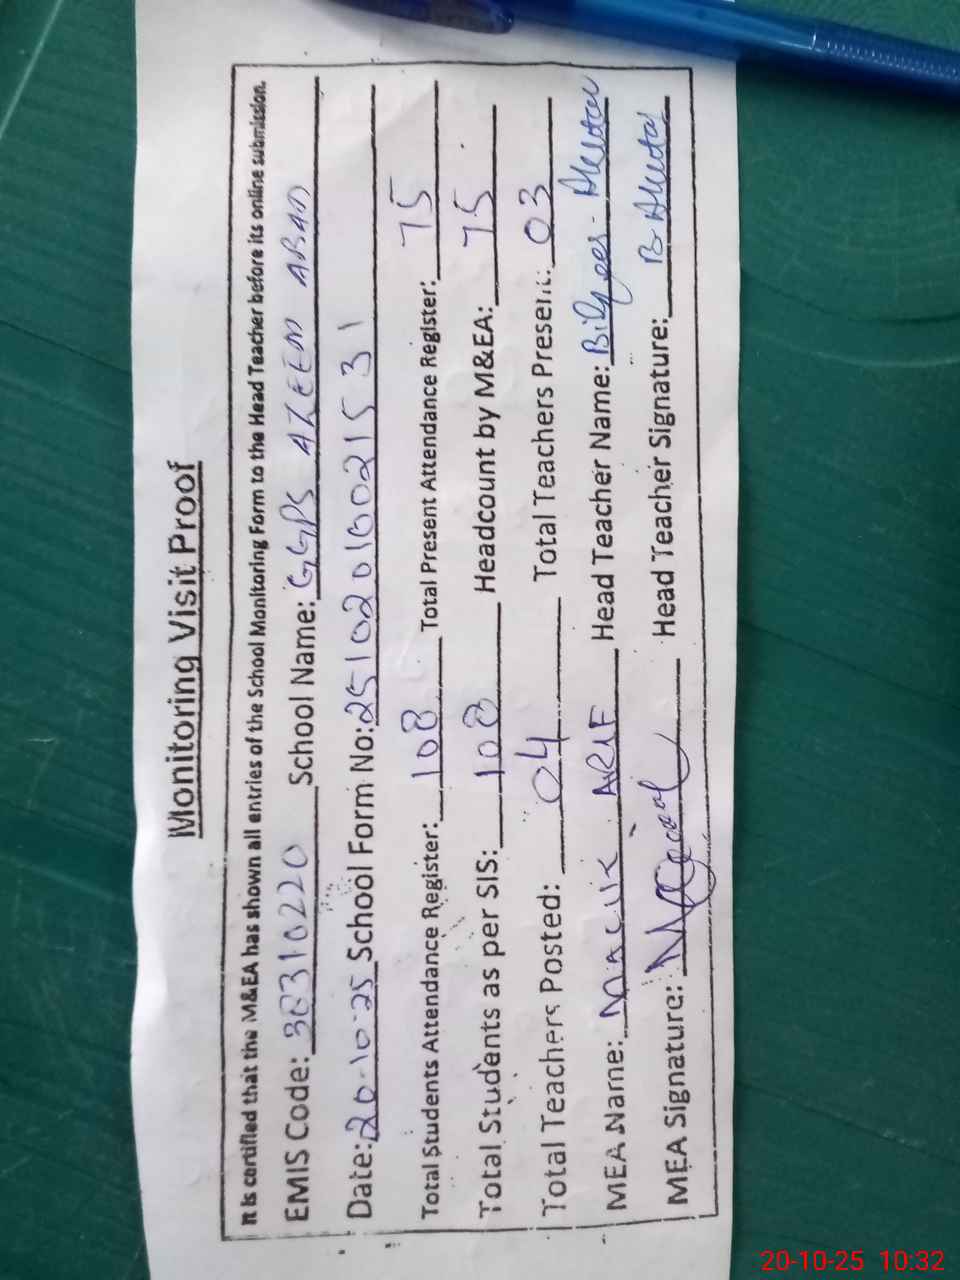 Monitoring Visit Proof
It is certified that the M&EA has shown all entries of the School Monitoring Form to the Head Teacher before its online submission.
EMIS Code: 38310220 School Name: GGPS AZEEM ABAD
Date: 20-10-25 School Form No: 25102010021531
Total Students Attendance Register: 108 Total Present Attendance Register: 75
Total Students as per SIS: 108 Headcount by M&EA: 75
Total Teachers Posted: 04 Total Teachers Present: 03
MEA Name: MALIK ARIF Head Teacher Name: Bilqees Akhtar
MEA Signature: Head Teacher Signature: B Akhtar
20-10-25 10:32